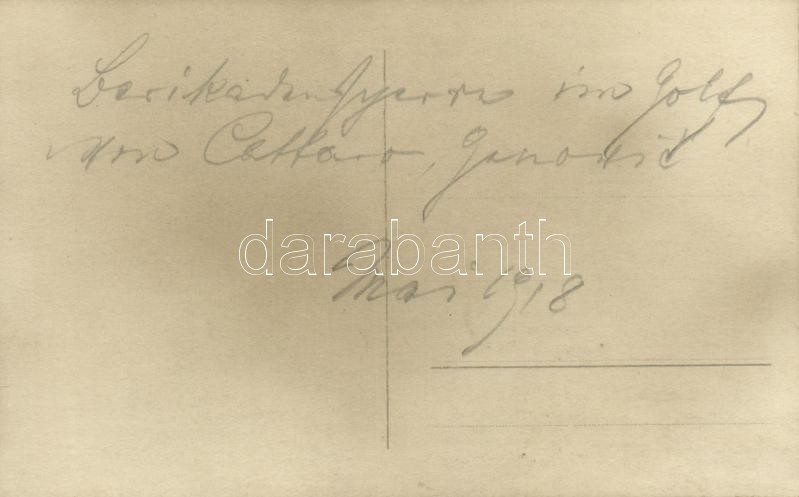 Barikadensperre im Golf
von Cattaro, Genovic
darabanth
Mai 1918